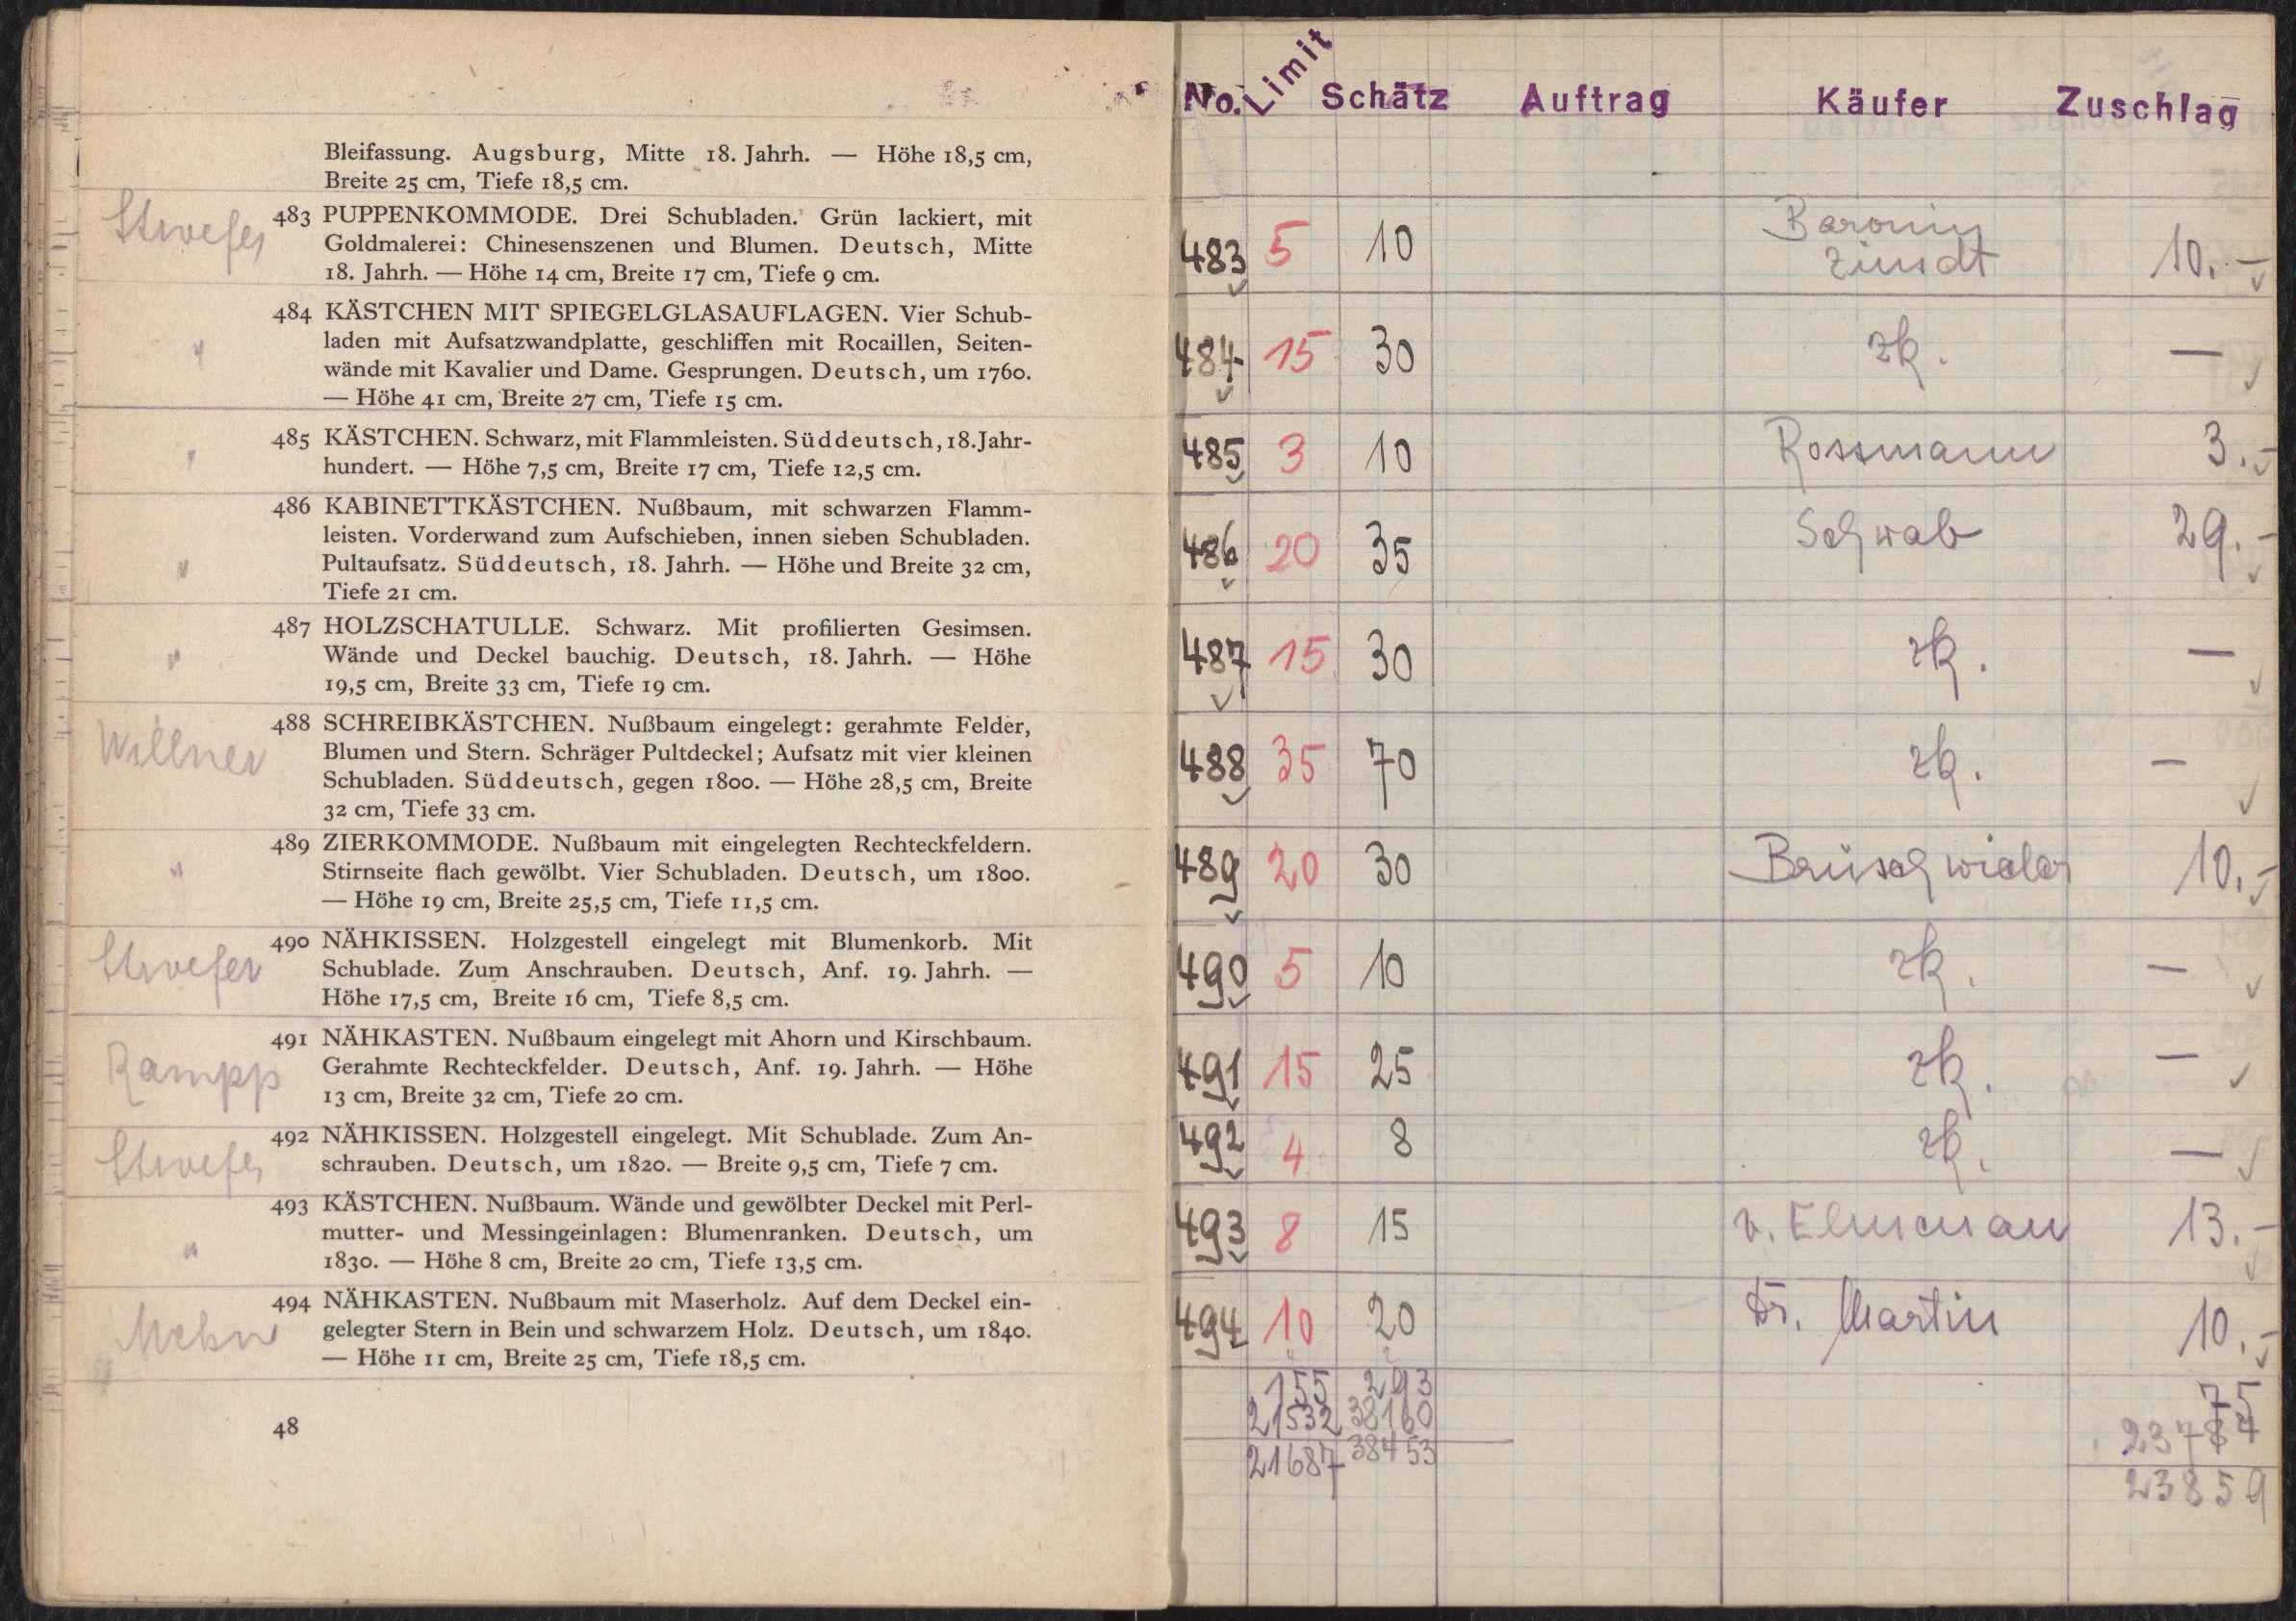 Bleifassung. Augsburg, Mitte 18. Jahrh. — Höhe 18,5 cm,
Breite 25 cm, Tiefe 18,5 cm.
483 PUPPENKOMMODE. Drei Schubladen. Grün lackiert, mit
Goldmalerei: Chinesenszenen und Blumen. Deutsch, Mitte
18. Jahrh. — Höhe 14 cm, Breite 17 cm, Tiefe 9 cm.
" 484 KÄSTCHEN MIT SPIEGELGLASAUFLAGEN. Vier Schub-
laden mit Aufsatzwandplatte, geschliffen mit Rocaillen, Seiten-
wände mit Kavalier und Dame. Gesprungen. Deutsch, um 1760.
— Höhe 41 cm, Breite 27 cm, Tiefe 15 cm.
" 485 KÄSTCHEN. Schwarz, mit Flammleisten. Süddeutsch, 18. Jahr-
hundert. — Höhe 7,5 cm, Breite 17 cm, Tiefe 12,5 cm.
" 486 KABINETTKÄSTCHEN. Nußbaum, mit schwarzen Flamm-
leisten. Vorderwand zum Aufschieben, innen sieben Schubladen.
Pultaufsatz. Süddeutsch, 18. Jahrh. — Höhe und Breite 32 cm,
Tiefe 21 cm.
" 487 HOLZSCHATULLE. Schwarz. Mit profilierten Gesimsen.
Wände und Deckel bauchig. Deutsch, 18. Jahrh. — Höhe
19,5 cm, Breite 33 cm, Tiefe 19 cm.
Willner 488 SCHREIBKÄSTCHEN. Nußbaum eingelegt: gerahmte Felder,
Blumen und Stern. Schräger Pultdeckel; Aufsatz mit vier kleinen
Schubladen. Süddeutsch, gegen 1800. — Höhe 28,5 cm, Breite
32 cm, Tiefe 33 cm.
" 489 ZIERKOMMODE. Nußbaum mit eingelegten Rechteckfeldern.
Stirnseite flach gewölbt. Vier Schubladen. Deutsch, um 1800.
— Höhe 19 cm, Breite 25,5 cm, Tiefe 11,5 cm.
490 NÄHKISSEN. Holzgestell eingelegt mit Blumenkorb. Mit
Schublade. Zum Anschrauben. Deutsch, Anf. 19. Jahrh. —
Höhe 17,5 cm, Breite 16 cm, Tiefe 8,5 cm.
Rampp 491 NÄHKASTEN. Nußbaum eingelegt mit Ahorn und Kirschbaum.
Gerahmte Rechteckfelder. Deutsch, Anf. 19. Jahrh. — Höhe
13 cm, Breite 32 cm, Tiefe 20 cm.
492 NÄHKISSEN. Holzgestell eingelegt. Mit Schublade. Zum An-
schrauben. Deutsch, um 1820. — Breite 9,5 cm, Tiefe 7 cm.
" 493 KÄSTCHEN. Nußbaum. Wände und gewölbter Deckel mit Perl-
mutter- und Messingeinlagen: Blumenranken. Deutsch, um
1830. — Höhe 8 cm, Breite 20 cm, Tiefe 13,5 cm.
494 NÄHKASTEN. Nußbaum mit Maserholz. Auf dem Deckel ein-
gelegter Stern in Bein und schwarzem Holz. Deutsch, um 1840.
— Höhe 11 cm, Breite 25 cm, Tiefe 18,5 cm.
48
No. Limit Schätz Auftrag Käufer Zuschlag
483 5 10 Baronin 10.—
484 15 30 zk. —
485 3 10 Rossmann 3.—
486 20 35 Schwab 29.—
487 15 30 zk. —
488 35 70 zk. —
489 20 30 Brüschwieler 10.—
490 5 10 zk. —
491 15 25 zk. —
492 4 8 zk. —
493 8 15 v. 13.—
494 10 20 Dr. Martin 10.—
155 293 75
21532 38160
21687 38453 23859